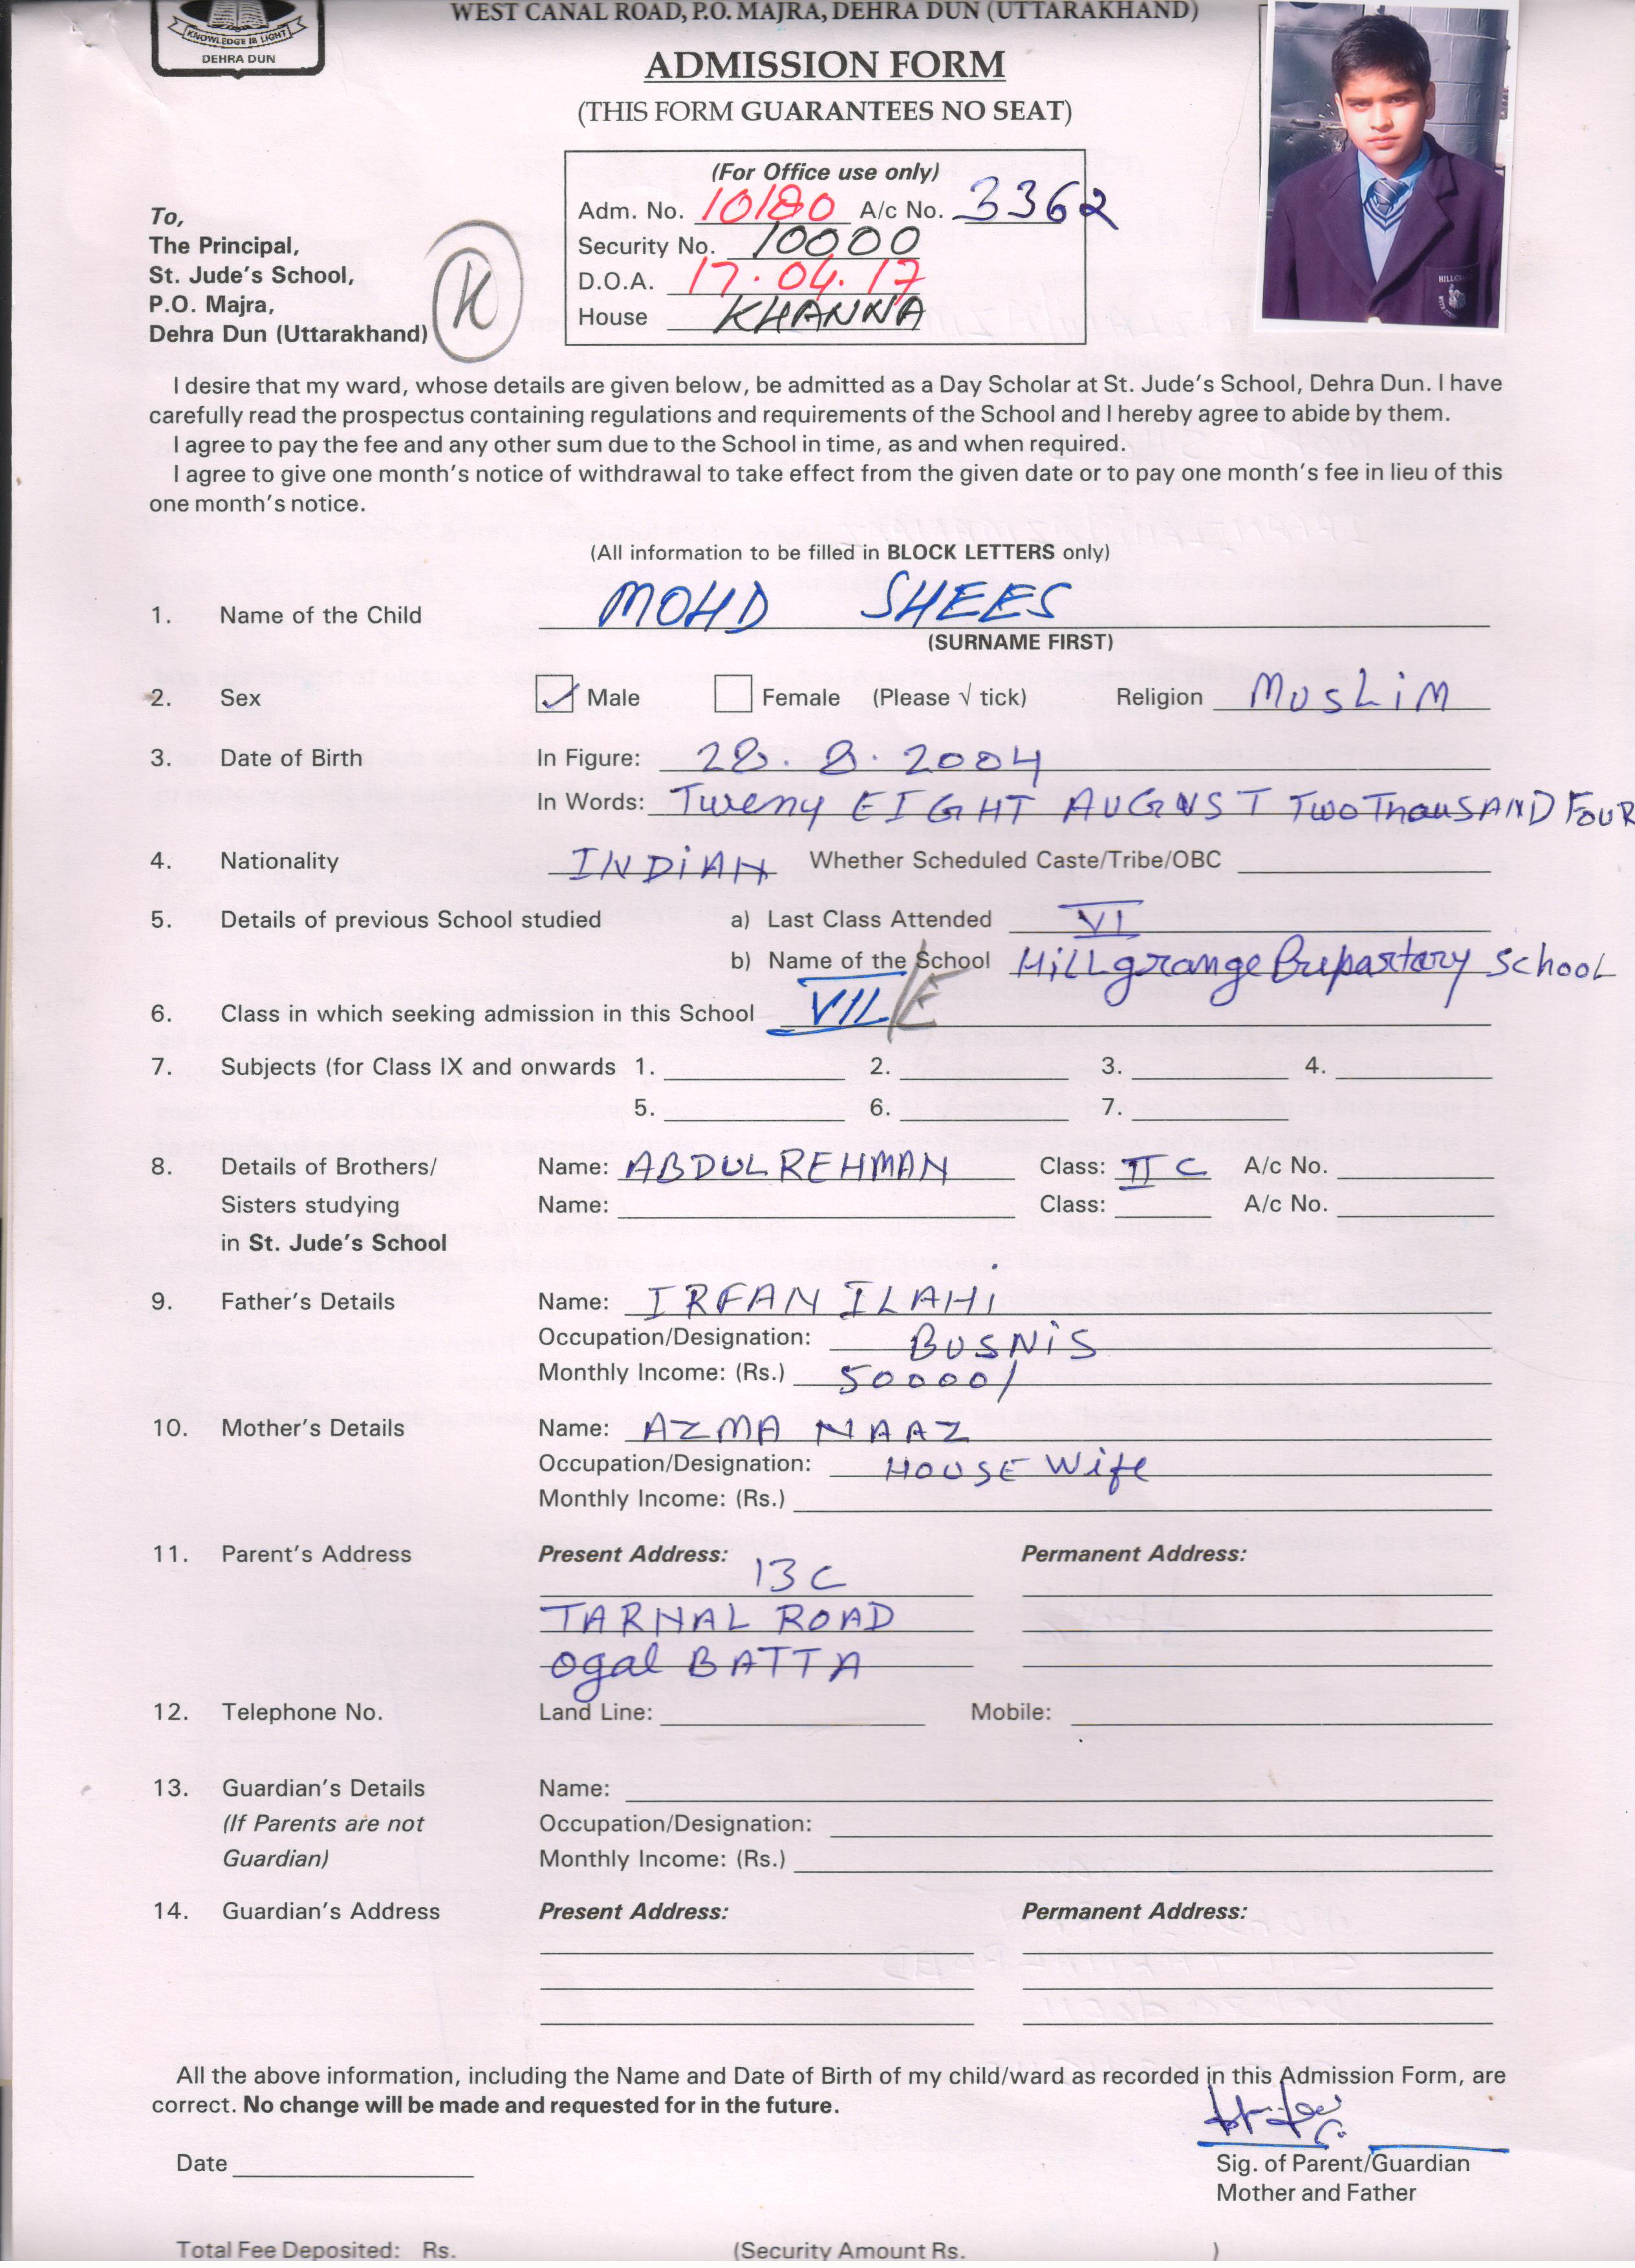 WEST CANAL ROAD, P.O. MAJRA, DEHRA DUN (UTTARAKHAND)
KNOWLEDGE IS LIGHT
DEHRA DUN
ADMISSION FORM
(THIS FORM GUARANTEES NO SEAT)
(For Office use only)
Adm. No. 10180 A/c No. 3362
Security No. 10000
D.O.A. 17.04.17
House KHANNA
To,
The Principal,
St. Jude's School,
P.O. Majra,
Dehra Dun (Uttarakhand)
K
HILLG
I desire that my ward, whose details are given below, be admitted as a Day Scholar at St. Jude's School, Dehra Dun. I have
carefully read the prospectus containing regulations and requirements of the School and I hereby agree to abide by them.
I agree to pay the fee and any other sum due to the School in time, as and when required.
I agree to give one month's notice of withdrawal to take effect from the given date or to pay one month's fee in lieu of this
one month's notice.
(All information to be filled in BLOCK LETTERS only)
1. Name of the Child MOHD SHEES
(SURNAME FIRST)
2. Sex Male Female (Please √ tick) Religion MUSLiM
3. Date of Birth In Figure: 28.8.2004
In Words: Tweny EIGHT AUGUST TWO ThouSAND FOUR
4. Nationality INDiAN Whether Scheduled Caste/Tribe/OBC
5. Details of previous School studied a) Last Class Attended VI
b) Name of the School HiLLgrange Prepartory SchooL
6. Class in which seeking admission in this School VII E
7. Subjects (for Class IX and onwards 1. 2. 3. 4.
5. 6. 7.
8. Details of Brothers/ Name: ABDUL REHMAN Class: II C A/c No.
Sisters studying Name: Class: A/c No.
in St. Jude's School
9. Father's Details Name: IRFAN ILAHi
Occupation/Designation: BUSNiS
Monthly Income: (Rs.) 50000/
10. Mother's Details Name: AZMA NAAZ
Occupation/Designation: HOUSE Wife
Monthly Income: (Rs.)
11. Parent's Address Present Address: Permanent Address:
13 C
TARNAL ROAD
Ogal BATTA
12. Telephone No. Land Line: Mobile:
13. Guardian's Details Name:
(If Parents are not Occupation/Designation:
Guardian) Monthly Income: (Rs.)
14. Guardian's Address Present Address: Permanent Address:
All the above information, including the Name and Date of Birth of my child/ward as recorded in this Admission Form, are
correct. No change will be made and requested for in the future.
Date
Sig. of Parent/Guardian
Mother and Father
Total Fee Deposited: Rs. (Security Amount Rs. )